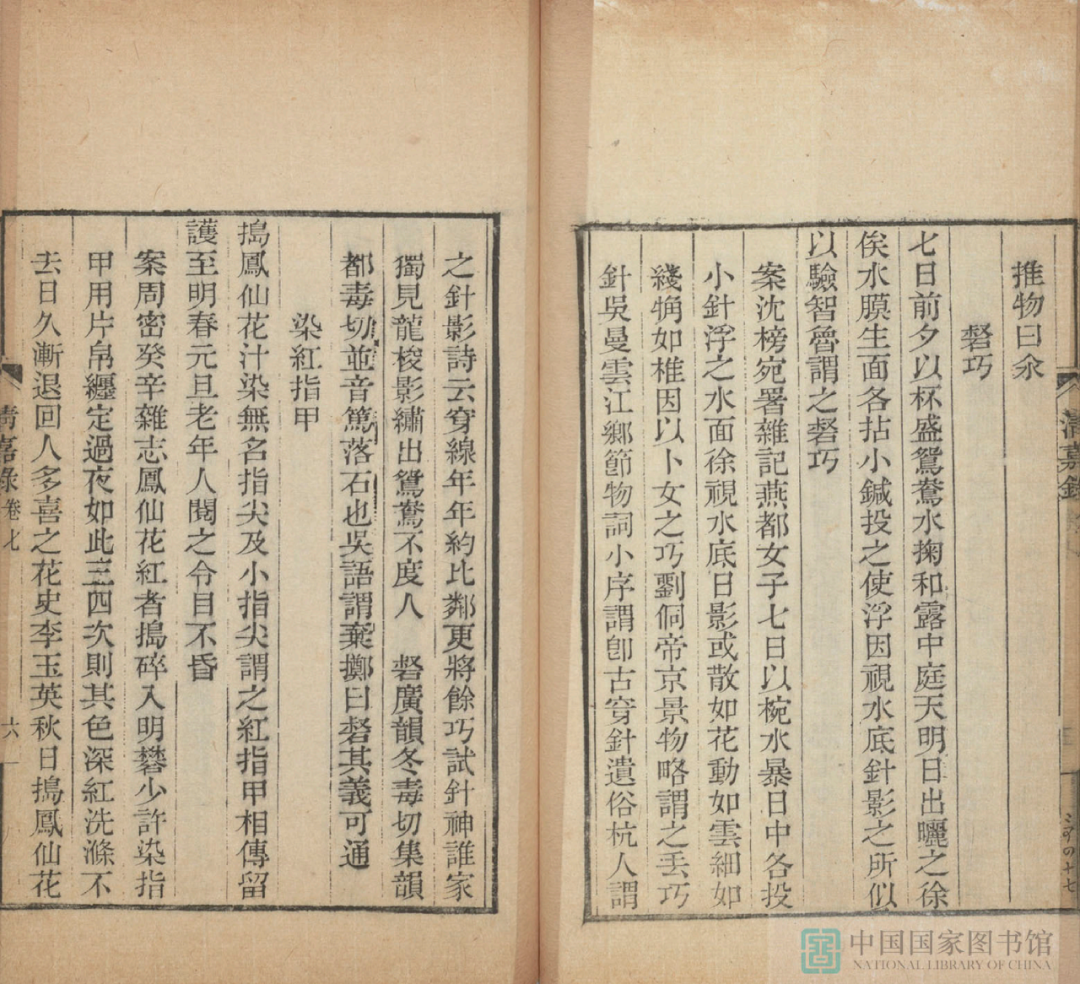 推物曰氽
䃤巧
七日前夕以杯盛鴛鴦水掬和露中庭天明日出曬之徐
俟水膜生面各拈小鍼投之使浮因視水底針影之所似
以驗智魯謂之䃤巧
案沈榜宛署雜記燕都女子七日以椀水暴日中各投
小針浮之水面徐視水底日影或散如花動如雲細如
綫觕如椎因以卜女之巧劉侗帝京景物略謂之丟巧
針吳曼雲江鄉節物詞小序謂卽古穿針遺俗杭人謂
之針影詩云穿線年年約比鄰更將餘巧試針神誰家
獨見龍梭影繡出鴛鴦不度人 䃤廣韻冬毒切集韻
都毒切並音篤落石也吳語謂棄擲曰䃤其義可通
染紅指甲
搗鳳仙花汁染無名指尖及小指尖謂之紅指甲相傳留
護至明春元旦老年人閱之令目不昏
案周密癸辛雜志鳳仙花紅者搗碎入明礬少許染指
甲用片帛纏定過夜如此三四次則其色深紅洗滌不
去日久漸退回人多喜之花史李玉英秋日搗鳳仙花
清嘉錄卷七
六
清嘉錄
中国国家图书馆
NATIONAL LIBRARY OF CHINA